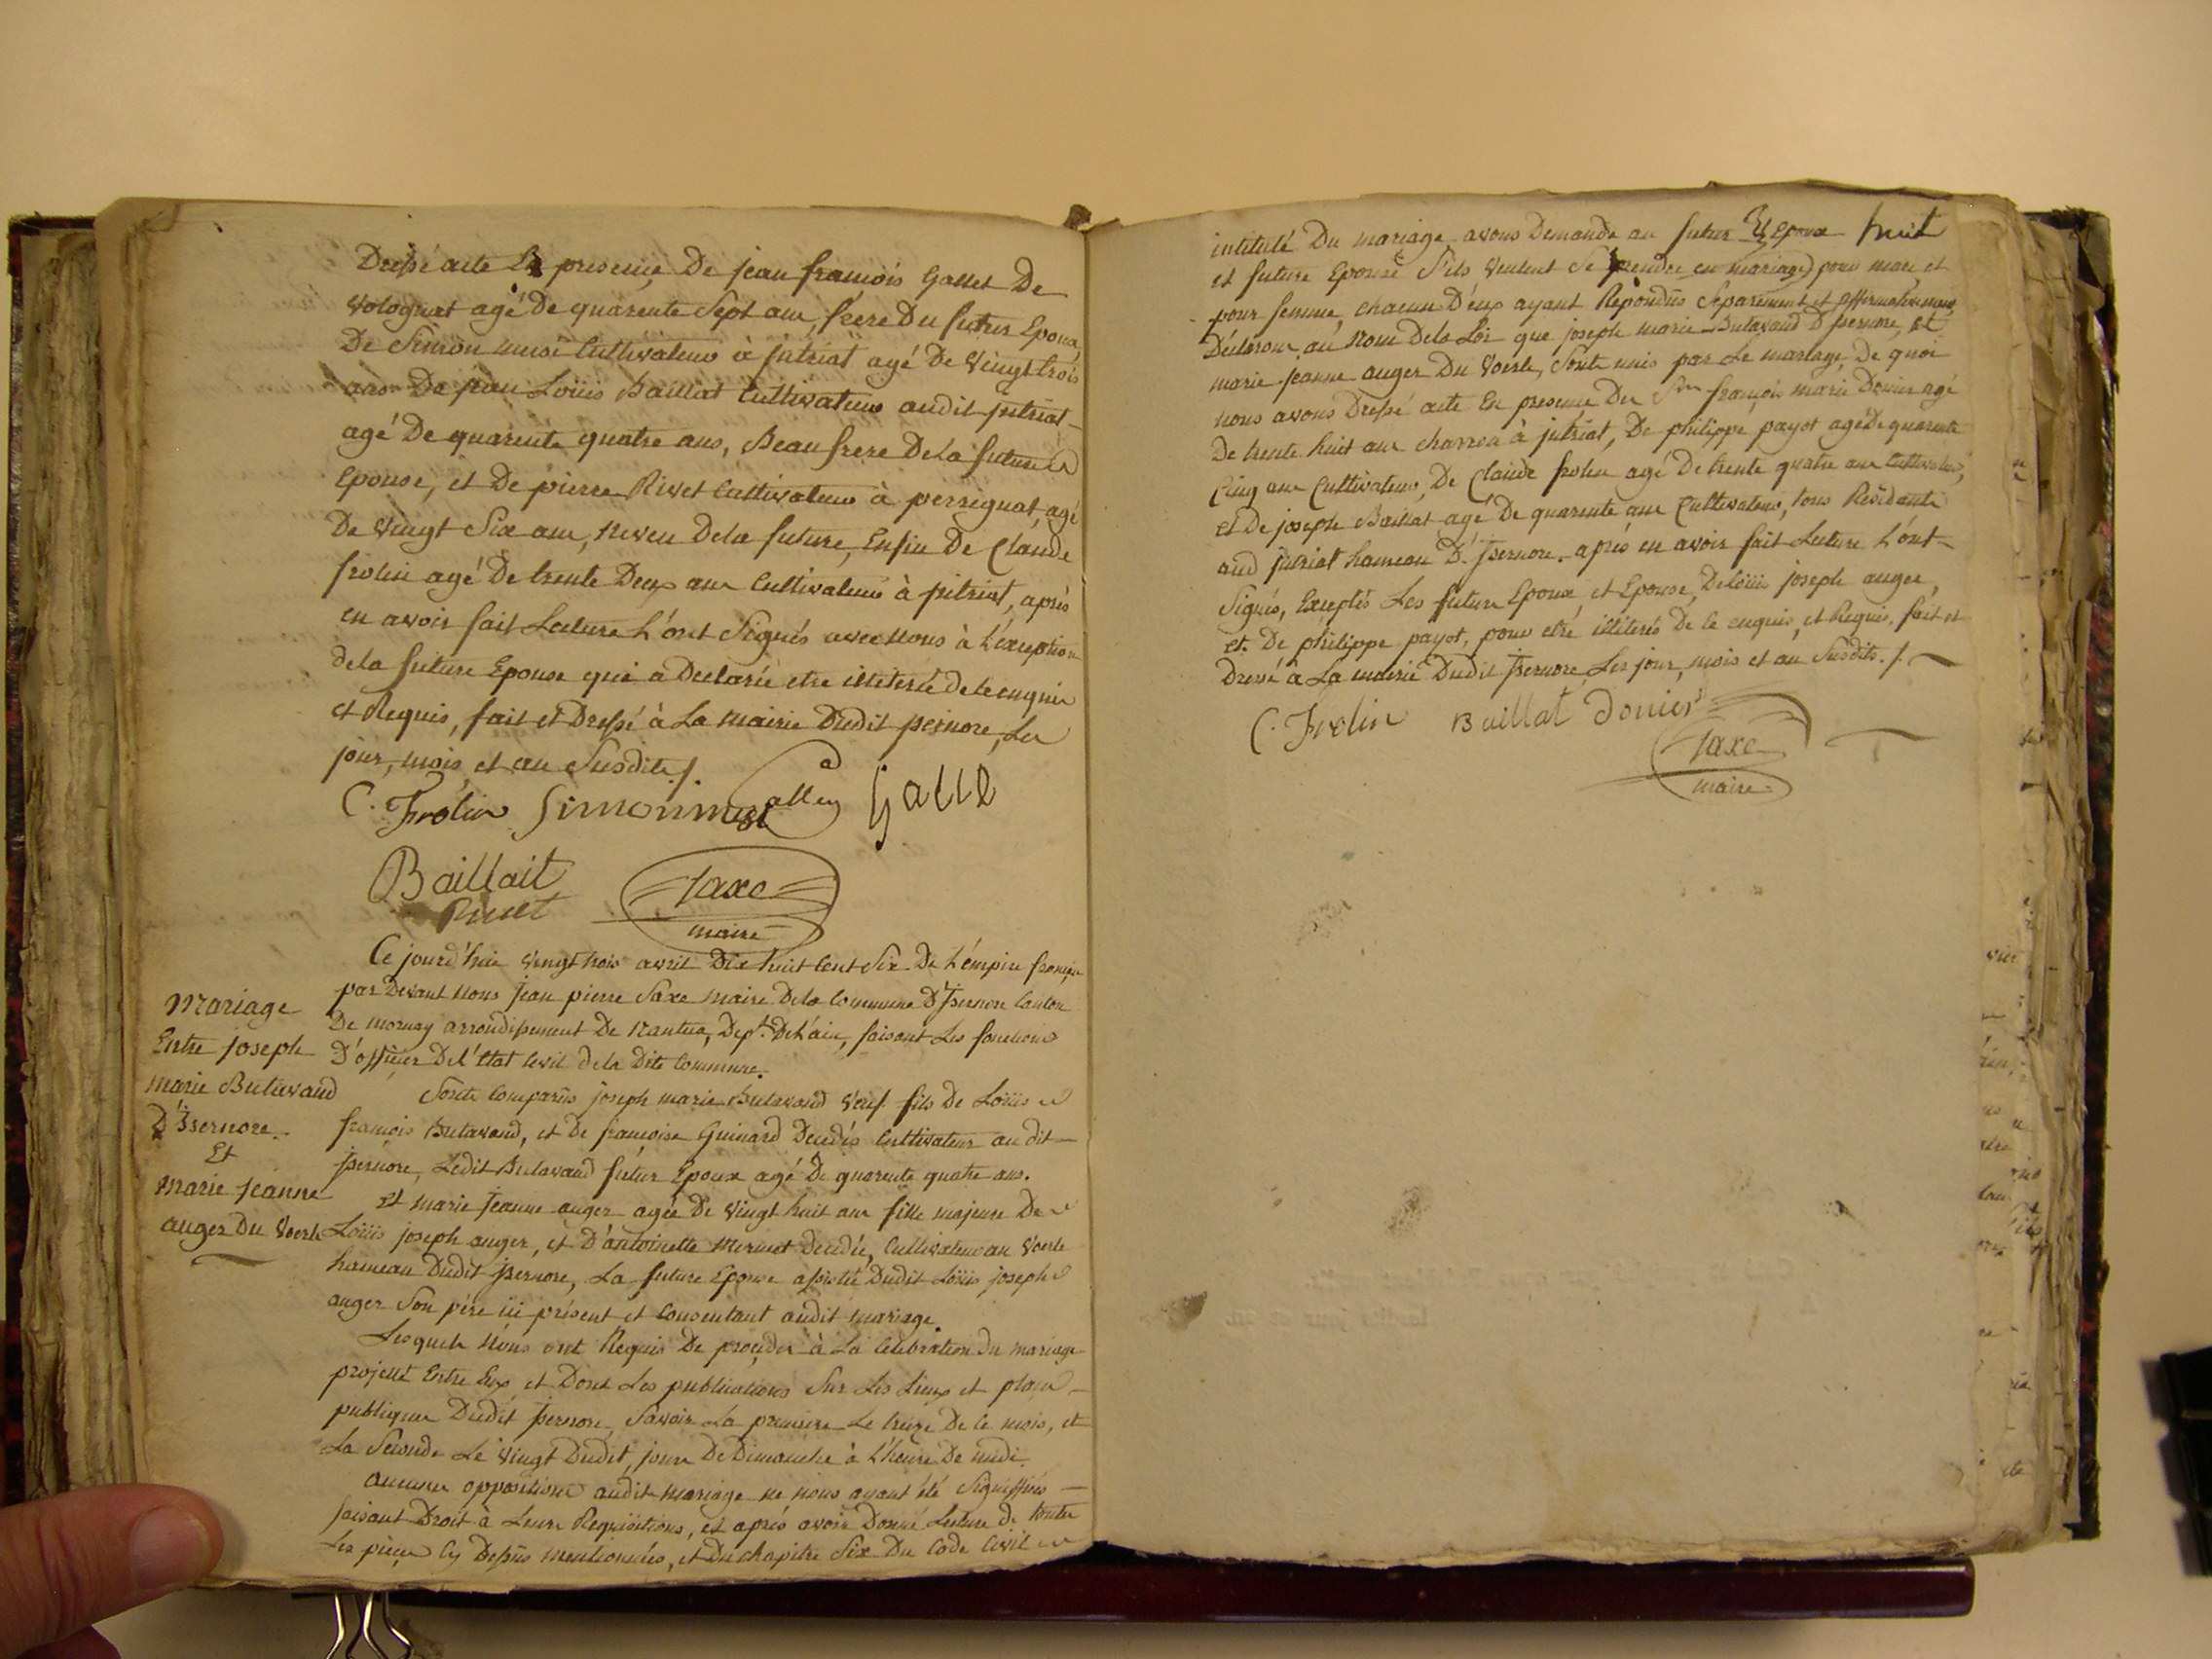 Dressé acte En presence, De jean françois Gallet De
Volognat agé De quarente Sept ans, frere Du futur Epoux,
De Simon musi Cultivateur à jutriat agé De Vingt trois
ans De jean Loüis Baillat Cultivateur audit jutriat
agé De quarente quatre ans, Beau frere De la future
Epouse, et De pierre Rivet Cultivateur à perrignat agé
De Vingt Six ans, neveu De la future, Enfin De Claude
frolin agé De trente Deux ans Cultivateur à jutriat, après
en avoir fait Lecture L'ont Signés avec Nous à L'exception
de la future Epouse qui a Declarée etre illiterée de le enquise
et Requis, fait et Dressé à La Mairie Dudit jsernore, Les
jour, mois et an Susdits ./.
C. Frolin Simon musi Gallet Galle
Baillait
Rivet Saxe
maire
Ce jourd'hui Vingt trois avril Dix huit Cent Six De L'empire français
par Devant Nous Jean pierre Saxe Maire De la Commune D'Jsernore Canton
De mornay arrondissement De Nantua, Dept. De L'ain, faisant Les fonctions
D'officier De L'Etat Civil de la Dite Commune.
Mariage
Entre joseph
marie Butavand
D'Isernore
Et
Marie Jeanne
auger Du Voerle
Sont Comparus joseph marie Butavand Veuf fils De Loüis
françois Butavand, et De françoise Guinard Decedés Cultivateur au dit
jsernore, Ledit Butavand futur Epoux agé De quarente quatre ans.
Et marie Jeanne auger agée De Vingt huit ans fille majeure De
Loüis joseph auger, et D'antoinette Mermet decedée, Cultivateur au Voerle
hameau Dudit jsernore, La future Epouse assistée Dudit Loüis joseph
auger Son pére ici présent et Consentant audit Mariage.
Lesquels Nous ont Requis De proceder à La Célébration du mariage
projetté Entre Eux et Dont Les publications Sur Les Lieux et places
publiques Dudit Jsernore, Savoir La premiere Le treize De ce mois, et
La Seconde Le Vingt Dudit, jours De Dimanche à L'heure De midi.
Aucunes oppositions audit Mariage ne nous ayant été Signiffiées
faisant Droit à Leurs Requisitions, et après avoir Donné Lecture de toutes
Les pieces Cy Dessus mentionnées, et Du chapitre Six Du Code Civil
intitulé Du mariage avons Demandé au futur Epoux huit
et future Epouse S'ils Veulent Se prendre en mariage) pour mari, et
pour femme, chacun D'eux ayant Repondus Séparément et affirmativement
Déclarons au Nom De la Loi que joseph marie Butavand D'jsernore, et
marie jeanne auger Du Voerle, Sont unis par Le mariage, De quoi
nous avons Dressé acte En presence Du Sr. françois marie Donier agé
De trente huit ans charron à jutriat, De philippe payot agé De quarente
Cinq ans Cultivateur, De Claude frolin agé De trente quatre ans Cultivateur,
et De joseph Baillat agé De quarente ans Cultivateur, tous Résidants
aud jutriat hameau D'jsernore. après en avoir fait Lecture L'ont
Signés, Exceptés Les future Epoux, et Epouse, De Loüis joseph auger,
et De philippe payot, pour etre illiterés De le enquis, et Requis, fait et
Dressé à La mairie Dudit jsernore Les jour, mois et an Susdits ./.
C. Frolin Baillat Donier
Saxe
maire